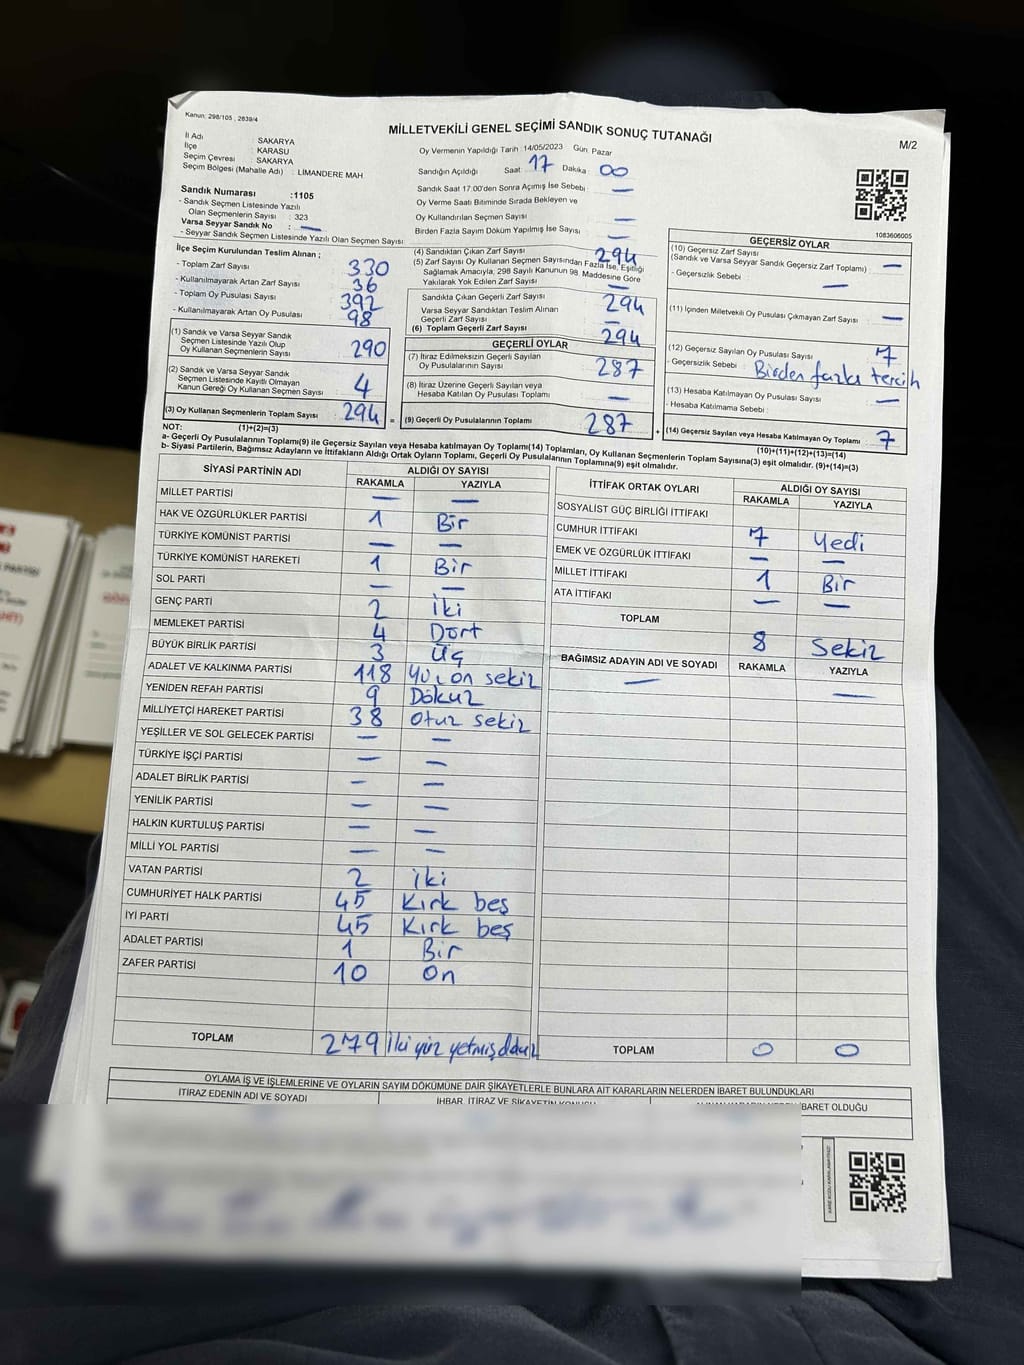 Kanun: 298/105 , 2839/4
MİLLETVEKİLİ GENEL SEÇİMİ SANDIK SONUÇ TUTANAĞI
M/2
İl Adı : SAKARYA
İlçe : KARASU
Seçim Çevresi : SAKARYA
Seçim Bölgesi (Mahalle Adı) : LİMANDERE MAH
Sandık Numarası :1105
- Sandık Seçmen Listesinde Yazılı
Olan Seçmenlerin Sayısı : 323
Varsa Seyyar Sandık No : —
- Seyyar Sandık Seçmen Listesinde Yazılı Olan Seçmen Sayısı
Oy Vermenin Yapıldığı Tarih : 14/05/2023 Gün: Pazar
Sandığın Açıldığı Saat: 17 Dakika: 00
Sandık Saat 17:00'den Sonra Açımış İse Sebebi : —
Oy Verme Saati Bitiminde Sırada Bekleyen ve
Oy Kullandırılan Seçmen Sayısı : —
Birden Fazla Sayım Döküm Yapılmış İse Sayısı : —
1083606005
İlçe Seçim Kurulundan Teslim Alınan ;
- Toplam Zarf Sayısı : 330
- Kullanılmayarak Artan Zarf Sayısı : 36
- Toplam Oy Pusulası Sayısı : 392
- Kullanılmayarak Artan Oy Pusulası : 98
(1) Sandık ve Varsa Seyyar Sandık
Seçmen Listesinde Yazılı Olup
Oy Kullanan Seçmenlerin Sayısı 290
(2) Sandık ve Varsa Seyyar Sandık
Seçmen Listesinde Kayıtlı Olmayan
Kanun Gereği Oy Kullanan Seçmen Sayısı 4
(3) Oy Kullanan Seçmenlerin Toplam Sayısı 294 =
(4) Sandıktan Çıkan Zarf Sayısı : 294
(5) Zarf Sayısı Oy Kullanan Seçmen Sayısından Fazla İse, Eşitliği
Sağlamak Amacıyla, 298 Sayılı Kanunun 98. Maddesine Göre
Yakılarak Yok Edilen Zarf Sayısı : —
Sandıkta Çıkan Geçerli Zarf Sayısı : 294
Varsa Seyyar Sandıktan Teslim Alınan
Geçerli Zarf Sayısı : —
(6) Toplam Geçerli Zarf Sayısı : 294
GEÇERLİ OYLAR
(7) İtiraz Edilmeksizin Geçerli Sayılan
Oy Pusulalarının Sayısı : 287
(8) İtiraz Üzerine Geçerli Sayılan veya
Hesaba Katılan Oy Pusulası Toplamı : —
(9) Geçerli Oy Pusulalarının Toplamı : 287 +
GEÇERSİZ OYLAR
(10) Geçersiz Zarf Sayısı
(Sandık ve Varsa Seyyar Sandık Geçersiz Zarf Toplamı) : —
- Geçersizlik Sebebi : —
(11) İçinden Milletvekili Oy Pusulası Çıkmayan Zarf Sayısı : —
(12) Geçersiz Sayılan Oy Pusulası Sayısı : 7
- Geçersizlik Sebebi : Birden fazla tercih
(13) Hesaba Katılmayan Oy Pusulası Sayısı : —
- Hesaba Katılmama Sebebi :
(14) Geçersiz Sayılan veya Hesaba Katılmayan Oy Toplamı : 7
NOT: (1)+(2)=(3) (10)+(11)+(12)+(13)=(14)
a- Geçerli Oy Pusulalarının Toplamı(9) ile Geçersiz Sayılan veya Hesaba katılmayan Oy Toplamı(14) Toplamları, Oy Kullanan Seçmenlerin Toplam Sayısına(3) eşit olmalıdır. (9)+(14)=(3)
b- Siyasi Partilerin, Bağımsız Adayların ve İttifakların Aldığı Ortak Oyların Toplamı, Geçerli Oy Pusulalarının Toplamına(9) eşit olmalıdır.
SİYASİ PARTİNİN ADI ALDIĞI OY SAYISI
RAKAMLA YAZIYLA
MİLLET PARTİSİ — —
HAK VE ÖZGÜRLÜKLER PARTİSİ 1 Bir
TÜRKİYE KOMÜNİST PARTİSİ — —
TÜRKİYE KOMÜNİST HAREKETİ 1 Bir
SOL PARTİ — —
GENÇ PARTİ 2 İki
MEMLEKET PARTİSİ 4 Dört
BÜYÜK BİRLİK PARTİSİ 3 Üç
ADALET VE KALKINMA PARTİSİ 118 on sekiz
YENİDEN REFAH PARTİSİ 9 Dokuz
MİLLİYETÇİ HAREKET PARTİSİ 38 Otuz sekiz
YEŞİLLER VE SOL GELECEK PARTİSİ — —
TÜRKİYE İŞÇİ PARTİSİ — —
ADALET BİRLİK PARTİSİ — —
YENİLİK PARTİSİ — —
HALKIN KURTULUŞ PARTİSİ — —
MİLLİ YOL PARTİSİ — —
VATAN PARTİSİ 2 iki
CUMHURİYET HALK PARTİSİ 45 Kırk beş
İYİ PARTİ 45 Kırk beş
ADALET PARTİSİ 1 Bir
ZAFER PARTİSİ 10 On
TOPLAM 279 iki yüz yetmiş dokuz
İTTİFAK ORTAK OYLARI ALDIĞI OY SAYISI
RAKAMLA YAZIYLA
SOSYALİST GÜÇ BİRLİĞİ İTTİFAKI
CUMHUR İTTİFAKI 7 Yedi
EMEK VE ÖZGÜRLÜK İTTİFAKI — —
MİLLET İTTİFAKI 1 Bir
ATA İTTİFAKI — —
TOPLAM 8 Sekiz
BAĞIMSIZ ADAYIN ADI VE SOYADI RAKAMLA YAZIYLA
— —
TOPLAM 0 0
OYLAMA İŞ VE İŞLEMLERİNE VE OYLARIN SAYIM DÖKÜMÜNE DAİR ŞİKAYETLERLE BUNLARA AİT KARARLARIN NELERDEN İBARET BULUNDUKLARI
İTİRAZ EDENİN ADI VE SOYADI İHBAR, İTİRAZ VE ŞİKAYETİN KONUSU İBARET OLDUĞU